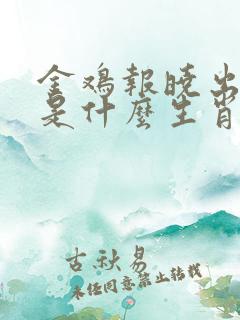 金鸡報曉出
是什麼生肖
古秋易
未经同意禁止转载